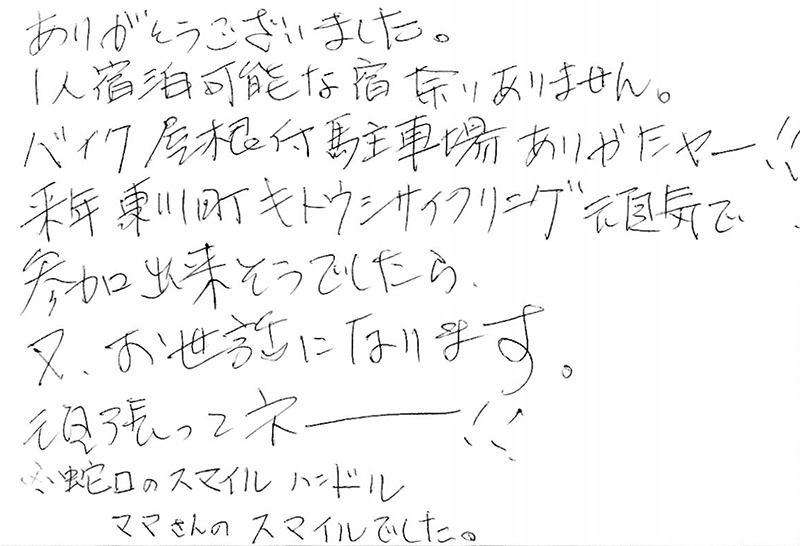 ありがとうございました。
1人宿泊可能な宿余りありません。
バイク屋根付駐車場ありがたやー!!
来年東川町キトウシサイクリング元気で
参加出来そうでしたら、
又、お世話になります。
頑張ってネー!!
※蛇口のスマイルハンドル
ママさんのスマイルでした。